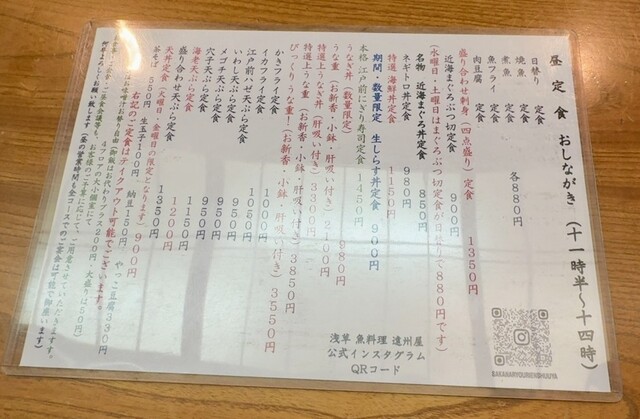 昼定食 おしながき (十一時半〜十四時)
日替り 定食
焼魚 定食
煮魚 定食
魚フライ 定食
肉豆腐 定食
各880円
盛り合わせ刺身(四点盛り)定食 1350円
近海まぐろぶつ切定食 900円
(水曜日・土曜日はまぐろぶつ切定食が日替りで880円です)
名物 近海まぐろ丼定食 850円
ネギトロ丼定食 980円
特選 海鮮丼定食 1150円
期間・数量限定 生しらす丼定食 900円
本格 江戸前にぎり寿司定食 1450円
うなぎ丼(数量限定) 980円
うな重(お新香・小鉢・肝吸い付き) 2100円
特選上うなぎ丼(肝吸い付き) 3300円
特選上うな重(お新香・小鉢・肝吸い付き) 3550円
びっくりうな重!(お新香・小鉢・肝吸い付き) 3850円
かきフライ定食 1050円
イカフライ定食 1000円
江戸前ハゼ天ぷら定食
いわし天ぷら定食 950円
メゴチ天ぷら定食 950円
穴子天ぷら定食 950円
海老天ぷら定食 1150円
盛り合わせ天ぷら定食 1200円
天丼定食(火曜日・金曜日の限定となります) 900円
茶そば 550円 生玉子100円 納豆150円 やっこ豆腐330円
右記のご定食はテイクアウト可能でございます。
浅草 魚料理 遠州屋
公式インスタグラム
QRコード
SAKANARYOURIENSHUUYA